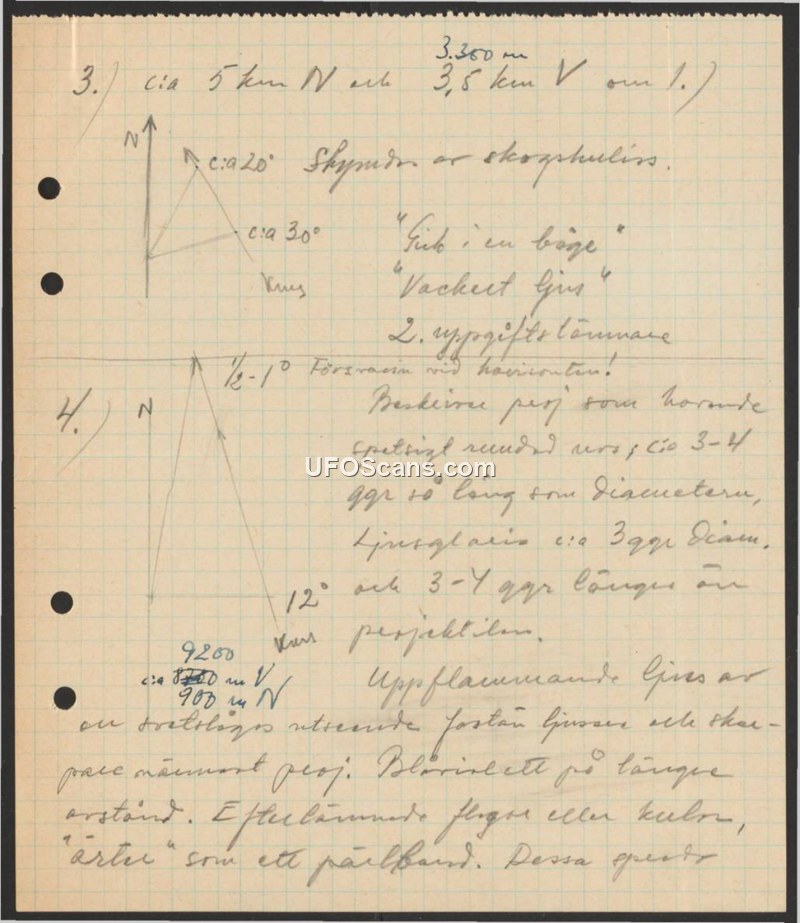 3.300 m
3.) c:a 5 km N och 3,5 km V om 1.)
N
c:a 20° Skymdes av skogskuliss.
c:a 30° "Gick i en båge"
Kurs "Vackert ljus"
2. uppgiftslämnare
½-1° Försvann vid horisonten!
4.) N Beskriver proj som havande
spetsigt rundad nos; c:a 3-4
UFOScans.com
ggr så lång som diametern,
Ljusgloria c:a 3 ggr diam.
12° och 3-4 ggr längre än
Kurs projektilen.
9200
c:a m V Uppflammande ljus av
900 m N
en svetslågas utseende fastän ljusare och skar-
pare närmast proj. Blåviolett på längre
avstånd. Efterlämnade flagor eller kulor,
"ärter" som ett pärlband. Dessa